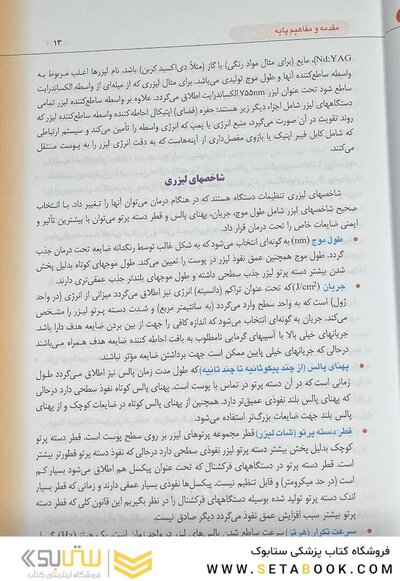 مقدمه و مفاهیم پایه
۱۳
Nd:YAG)، مایع (برای مثال مواد رنگی) یا گاز (مثلاً دی‌اکسید کربن) باشد. نام لیزرها اغلب مربوط به
واسطه ساطع‌کننده آنها و طول موج تولیدی می‌باشد. برای مثال لیزری که از میله‌ای از واسطه الکساندرایت
ساطع شود تحت عنوان لیزر ۷۵۵nm الکساندرایت اطلاق می‌گردد. علاوه بر واسطه ساطع‌کننده لیزر تمامی
دستگاههای لیزر شامل اجزاء دیگر زیر هستند: حفره (فضای) اپتیکال احاطه کننده واسطه ساطع‌کننده لیزر که
روند تقویت در آن صورت می‌گیرد، منبع انرژی یا پمپ که انرژی واسطه را تأمین می‌کند و سیستم ارتباطی
که شامل کابل فیبر اپتیک یا بازوی مفصل‌داری از آینه‌هاست که به دقت انرژی لیزر را به پوست منتقل
می‌کنند.
شاخصهای لیزری
شاخصهای لیزری تنظیمات دستگاه هستند که در هنگام درمان می‌توان آنها را تغییر داد. با انتخاب
صحیح شاخصهای لیزر شامل طول موج، جریان، پهنای پالس و قطر دسته پرتو می‌توان با بیشترین تأثیر و
ایمنی ضایعات خاص را تحت درمان قرار داد.
• طول موج (nm) به گونه‌ای انتخاب می‌شود که به شکل غالب توسط رنگدانه ضایعه تحت درمان جذب
گردد. طول موج همچنین عمق نفوذ لیزر در پوست را تعیین می‌کند. طول موجهای کوتاه بدلیل پخش
شدن بیشتر دسته پرتو لیزر جذب سطحی داشته و طول موجهای بلندتر جذب عمقی‌تری دارند.
• جریان (J/cm²) که تحت عنوان تراکم (دانسیته) انرژی نیز اطلاق می‌گردد میزانی از انرژی (در واحد
ژول) است که به واحد سطح وارد می‌گردد (به سانتیمتر مربع) و شدت دسته پرتو لیزر را مشخص
می‌کند. جریان به گونه‌ای انتخاب می‌شود که اندازه کافی را جهت از بین بردن ضایعه هدف دارا باشد.
جریانهای خیلی بالا با آسیبهای گرمایی نامطلوب به بافت احاطه کننده ضایعه هدف همراه می‌باشند
درحالی که جریانهای خیلی پایین ممکن است جهت برداشتن ضایعه مؤثر نباشند.
• پهنای پالس (از چند پیکوثانیه تا چند ثانیه) که طول مدت زمان پالس نیز اطلاق می‌گردد طول
زمانی است که در آن دسته پرتو در تماس با پوست است. پهنای پالس کوتاه نفوذ سطحی دارد درحالی
که پهنای پالس بلند نفوذی عمیق‌تر دارد. همچنین از پهنای پالس کوتاه در ضایعات کوچک و از پهنای
پالس بلند جهت ضایعات بزرگ‌تر استفاده می‌شود.
• قطر دسته پرتو (شات لیزر) قطر مجموعه پرتوهای لیزر بر روی سطح پوست است. قطر دسته پرتو
کوچک بدلیل پخش بیشتر دسته پرتو لیزر نفوذی سطحی دارد درحالی که نفوذ دسته پرتو قطورتر بیشتر
است. قطر دسته پرتو در دستگاههای فرکشنال که تحت عنوان پیکسل هم اطلاق می‌شود بسیار کم
است (در حد میکرومتر) و قابل تنظیم نیست. پیکسل‌ها نفوذی بسیار عمقی دارند و زمانی که قطر بسیار
اندک دسته پرتو تولید شده بوسیله دستگاههای فرکشنال را در نظر بگیریم این قانون کلی که قطر دسته
پرتو بیشتر سبب افزایش عمق نفوذ می‌گردد دیگر صادق نیست.
• سرعت تکرار (هرتز) سرعت ساطع شدن پالس‌های لیزر در
ستابوک
فروشگاه اینترنتی کتاب
فروشگاه کتاب پزشکی ستابوک
WWW.SETABOOK.COM